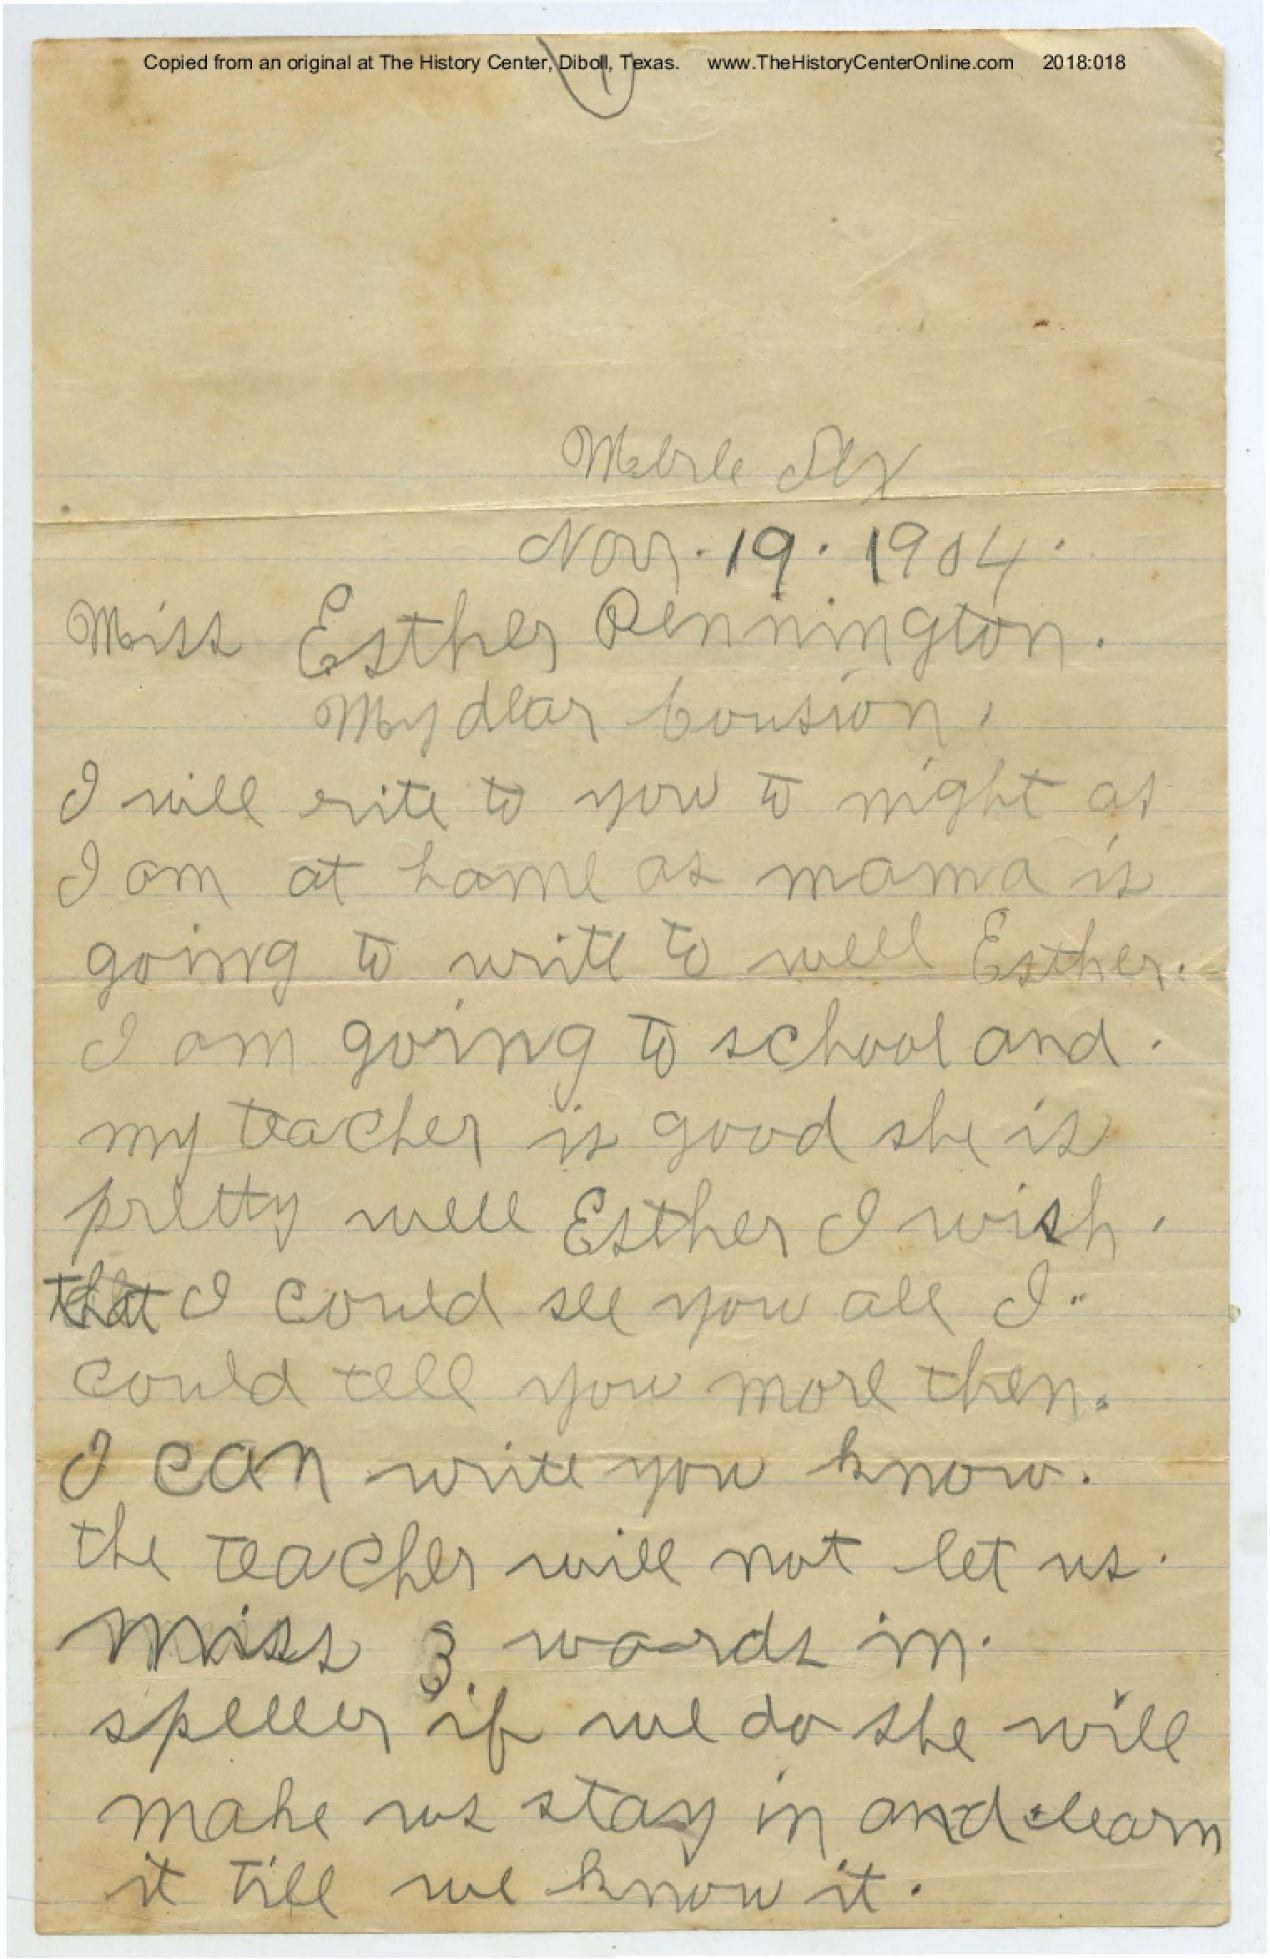 Copied from an original at The History Center, Diboll, Texas. www.TheHistoryCenterOnline.com 2018:018
1
Merle Tex
Nov. 19. 1904.
Miss Esther Pennington.
My dear Cousion,
I will rite to you to night as
I am at home as mama is
going to write to well Esther.
I am going to school and.
my teacher is good she is
pretty well Esther I wish,
that I could see you all I
could tell you more then.
I can write you know.
the teacher will not let us.
miss 3 words in.
speller if we do she will
make us stay in and learn
it till we know it.